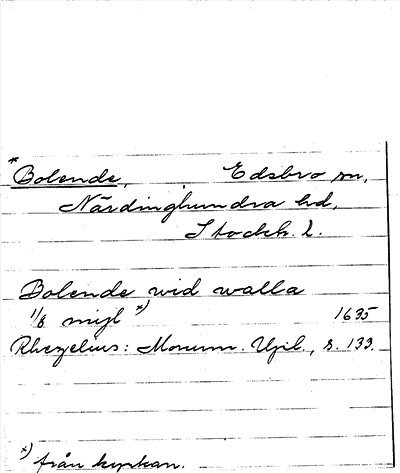 *Bolende, Edsbro sn,
Närdinghundra hd,
Stockh. l.
Bolende wid walla
1/8 mijl x) 1635
Rhezelius: Monum. Upl., s. 133.
x) från kyrkan.